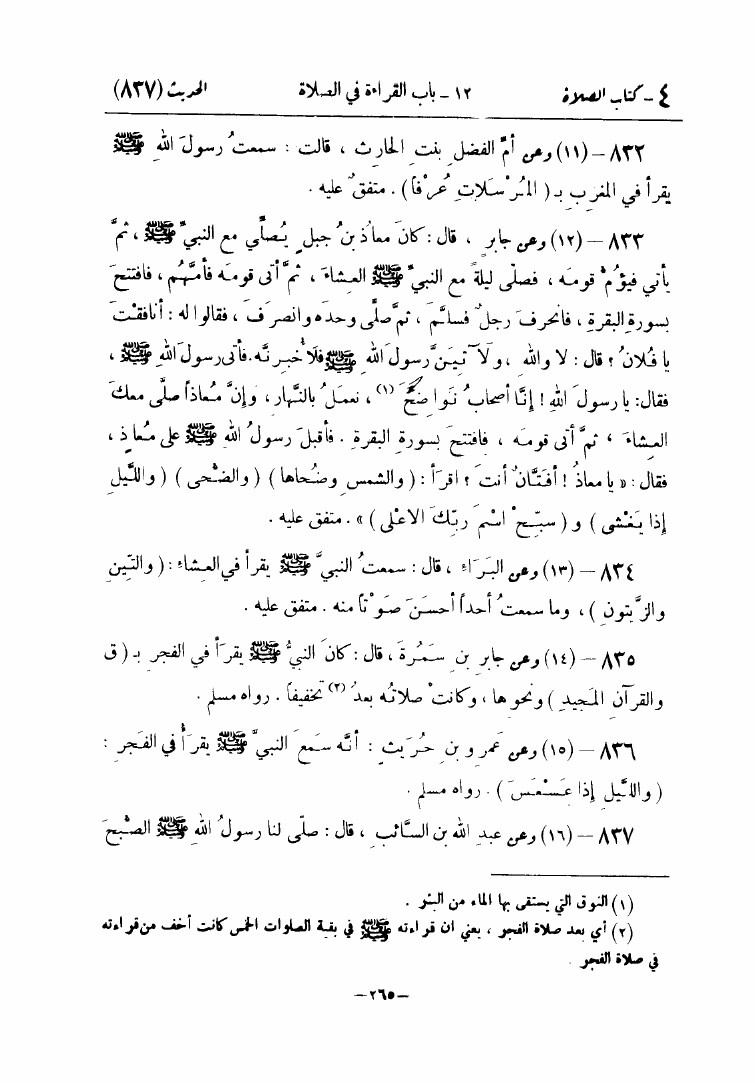 ٤ - كتاب الصلاة ١٢ - باب القراءة في الصلاة الحديث (٨٣٧)
٨٣٢ - (١١) وعن أمِّ الفضلِ بنتِ الحارثِ ، قالت : سمعتُ رسولَ اللهِ ﷺ
يقرأ في المغربِ بـ ( المُرْسَلاتِ عُرْفاً ) . متفقٌ عليه .
٨٣٣ - (١٢) وعن جابرٍ ، قال : كانَ معاذُ بنُ جبلٍ يُصلِّي مع النبيِّ ﷺ ، ثمَّ
يأتي فيؤُمُّ قومَه ، فصلّى ليلةً مع النبيِّ ﷺ العشاءَ ، ثمَّ أتى قومَه فأمَّهُم ، فافتتحَ
بسورةِ البقرةِ ، فانحرفَ رجلٌ فسلَّمَ ، ثمَّ صلَّى وحدَه وانصرَفَ ، فقالوا له : أنافقْتَ
يا فُلانُ ؟ قال : لا واللهِ ، ولآتِيَنَّ رسولَ اللهِ ﷺ فلأُخبرنَّه . فأتى رسولَ اللهِ ﷺ ،
فقال : يا رسولَ اللهِ ! إنَّا أصحابُ نَواضِحَ (١) ، نعملُ بالنَّهارِ ، وإنَّ مُعاذاً صلَّى معكَ
العشاءَ ، ثمَّ أتى قومَه ، فافتتحَ بسورةِ البقرةِ . فأقبلَ رسولُ اللهِ ﷺ على مُعاذٍ ،
فقال : « يا معاذُ ! أفتَّانٌ أنتَ ؟ اقرَأْ : ( والشمسِ وضُحاها ) ( والضُّحى ) ( واللَّيلِ
إذا يَغْشى ) و ( سبِّحِ اسْمَ ربِّكَ الأعْلى ) » . متفق عليه .
٨٣٤ - (١٣) وعن البَرَاءِ ، قال : سمعتُ النبيَّ ﷺ يقرأ في العشاءِ : ( والتِّينِ
والزَّيتونِ ) ، وما سمعتُ أحداً أحسنَ صَوْتاً منه . متفق عليه .
٨٣٥ - (١٤) وعن جابرِ بنِ سَمُرةَ ، قال : كانَ النبيُّ ﷺ يقرَأ في الفجرِ بـ ( ق
والقرآنِ المَجيدِ ) ونحوِها ، وكانتْ صلاتُه بعدُ (٢) تخفيفاً . رواه مسلم .
٨٣٦ - (١٥) وعن عَمرِو بنِ حُرَيثٍ : أنَّه سمَعَ النبيَّ ﷺ يقرَأُ في الفَجرِ :
( واللَّيلِ إذا عَسْعَسَ ) . رواه مسلم .
٨٣٧ - (١٦) وعن عبدِ اللهِ بن السَّائبِ ، قال : صلّى لنا رسولُ اللهِ ﷺ الصُّبحَ
(١) النوق التي يستقى بها الماء من البئر .
(٢) أي بعد صلاة الفجر ، يعني ان قراءته ﷺ في بقية الصلوات الخمس كانت أخف من قراءته
في صلاة الفجر .
- ٢٦٥ -